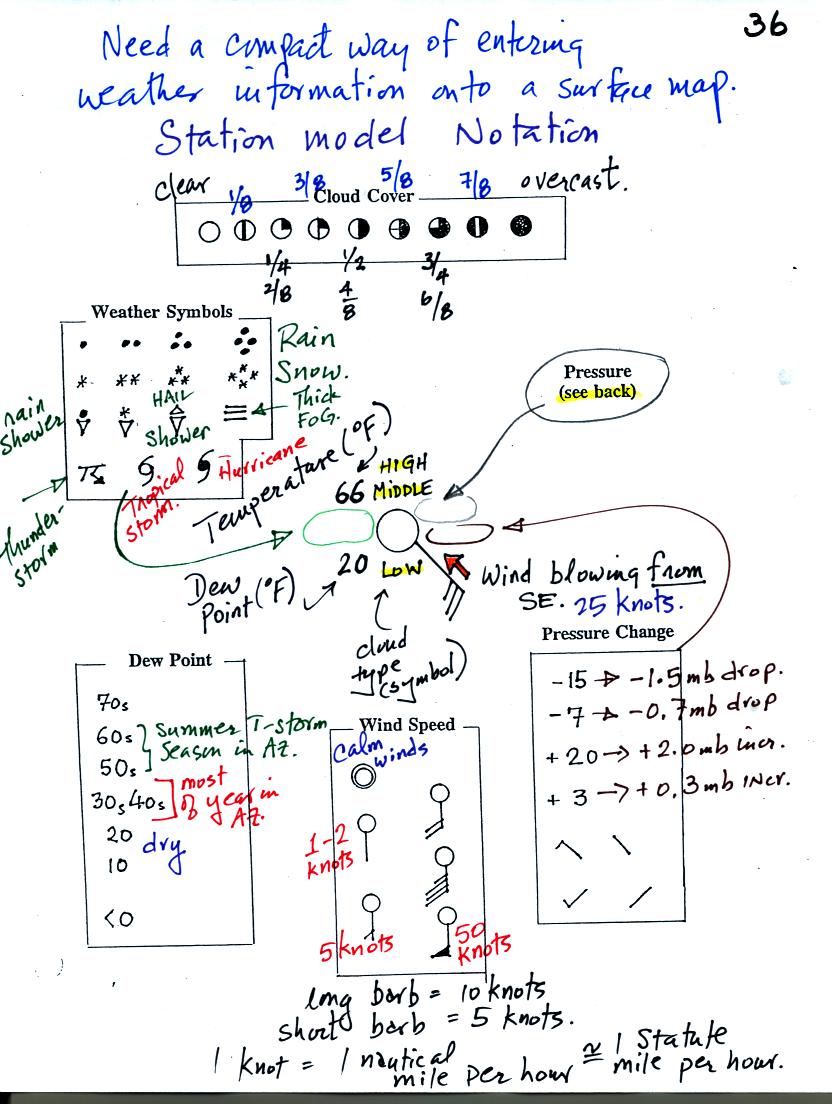 36
Need a compact way of entering
weather information onto a surface map.
Station model Notation
clear 1/8 3/8 5/8 7/8 overcast.
Cloud Cover
1/4 1/2 3/4
2/8 4/8 6/8
Weather Symbols
Rain
Snow.
HAIL
Thick
FOG.
rain
shower
Shower
Tropical
storm.
Hurricane
thunder-
storm
Pressure
(see back)
Temperature (°F)
66 HIGH
MIDDLE
20 LOW
Dew
Point (°F)
cloud
type
(symbol)
Wind blowing from
SE. 25 knots.
Dew Point
70s
60s
50s
Summer T-storm
Season in AZ.
30s 40s
most
of year in
AZ.
20
10
dry
<0
Wind Speed
calm
winds
1-2
knots
5 knots
50
knots
Pressure Change
-15 → -1.5 mb drop.
-7 → -0.7mb drop
+20 → +2.0mb incr.
+ 3 → +0.3 mb incr.
long barb = 10 knots
short barb = 5 knots.
1 knot = 1 nautical
mile per hour ≅ 1 statute
mile per hour.